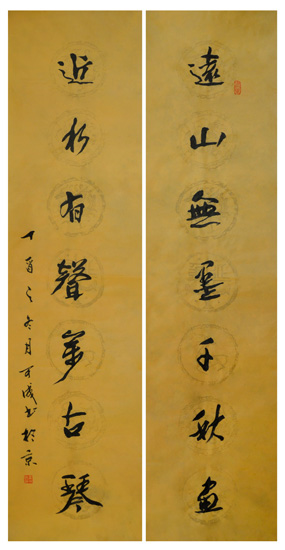 遠山無墨千秋畫
近水有聲萬古琴
丁酉之冬月成书於京